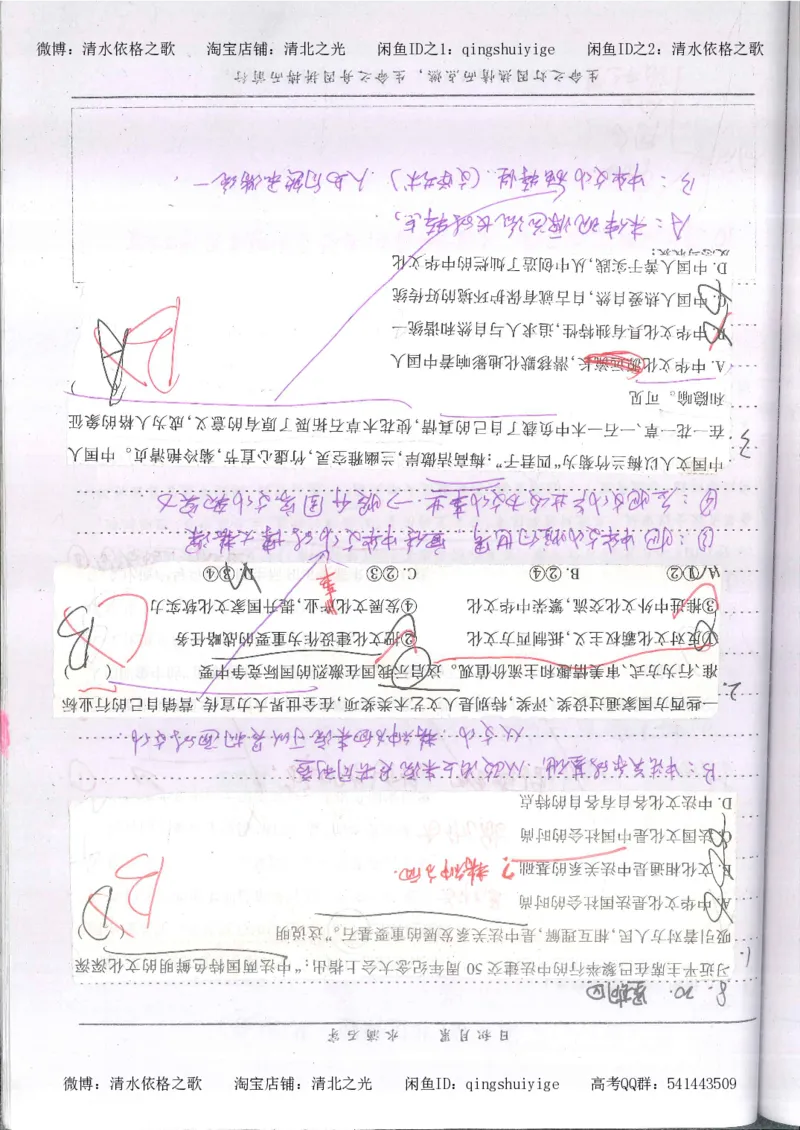 微博：清水依格之歌 淘宝店铺：清北之光 闲鱼ID之1：qingshuiyige 闲鱼ID之2：清水依格之歌
日积月累 水滴石穿
8.20.
1.
习近平主席在巴黎举行的中法建交 50 周年纪念大会上指出：“中法两国特色鲜明的文化深深
吸引着对方人民，相互理解，是中法关系发展的重要基石。”这说明 （ D ）
B
A. 中华文化是法国社会的时尚
B. 文化相通是中法关系的基础 ? 精神方面.
C. 法国文化是中国社会的时尚
D. 中法文化各自有各自的特点
B：中法关系的基础，从政治上来说是共同利益
从文化、精神方面来说可以是相通的文化
2.
一些西方国家通过设奖、评奖，特别是人文艺术类奖项，在全世界大力宣传、营销自己的行业标
准、行为方式、审美情趣和主流价值观。这启示我国在激烈的国际竞争中要 （ B ）
①反对文化霸权主义，抵制西方文化 ②把文化建设作为重要的战略任务
③推进中外文化交流，繁荣中华文化 ④发展文化产业，提升国家文化软实力
A. ①② B. ②④ C. ②③ D. ③④
3.
中国文人以梅兰竹菊为“四君子”：梅高洁傲岸，兰幽雅空灵，竹虚心直节，菊冷艳清贞。中国人
在一花一草、一石一木中负载了自己的真情，使花木草石拓展了原有的意义，成为人格的象征
和隐喻。可见
A. 中华文化源远流长，潜移默化地影响着中国人
B. 中华文化具有独特性，追求人与自然和谐统一
C. 中国人热爱自然，自古就有保护环境的好传统
D. 中国人善于实践，从中创造了灿烂的中华文化
A：未体现源远流长的特点；
生命之灯因热情而点燃，生命之舟因拼搏而前行
微博：清水依格之歌 淘宝店铺：清北之光 闲鱼ID：qingshuiyige 高考QQ群：541443509